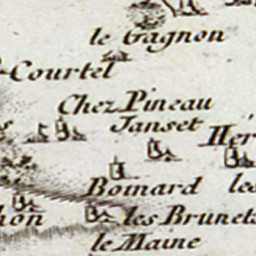 le Gagnon
Courtel
Chez Pineau
Janset
Hér
Boinard
les
hon
les Brunets
le Maine